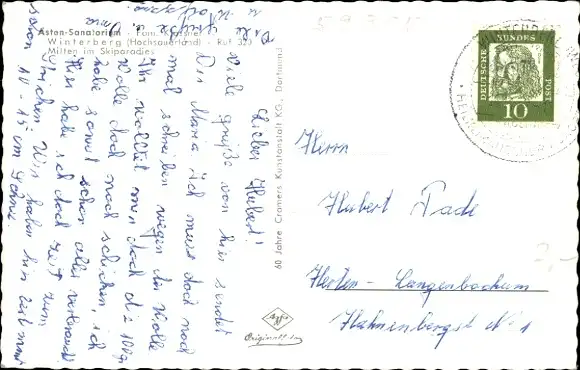 Asten-Sanatorium - Fam.
Winterberg (Hochsauerland) - Ruf 323
Mitten im Skiparadies
Lieber Hubert!
Viele Grüße von hier sendet
Dir Mama. Ich muss doch noch
mal schreiben wegen der Wolle
Ihr wolltet mir doch die
Wolle doch noch schicken, ich
habe sonst schon alles verbraucht
Hier habe ich doch Zeit zum
Stricken. Wir haben hier jetzt immer
schon 10 - 15 im
Viele Grüße u.
60 Jahre Cramers Kunstanstalt KG., Dortmund
Agfa
Original
DEUTSCHE BUNDESPOST
10
Herrn
Hubert Pade
Herten-Langenbochum
Hahnenbergst No 1
2,-